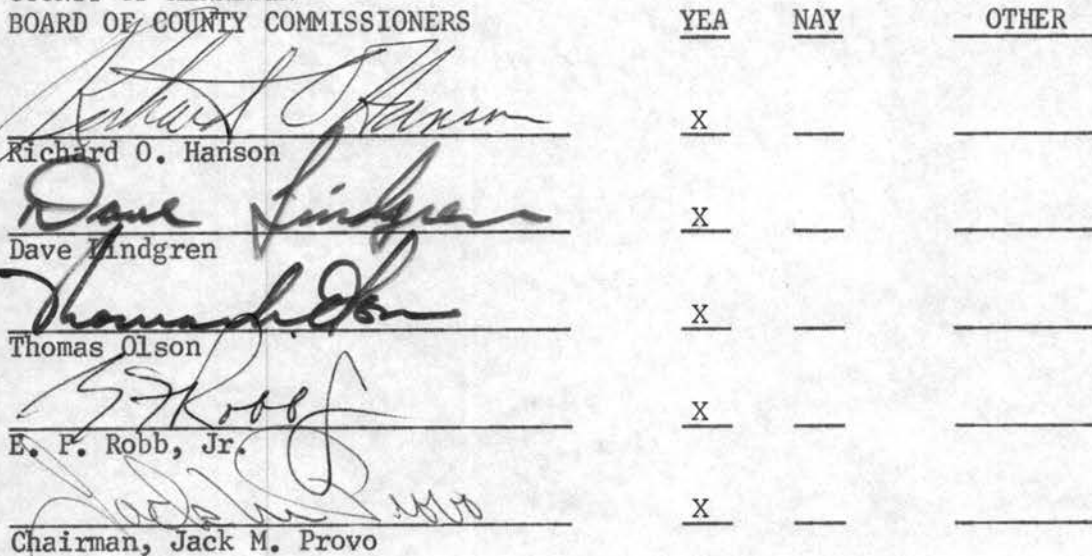 BOARD OF COUNTY COMMISSIONERS YEA NAY OTHER
Richard O. Hanson X
Richard O. Hanson
Dave Lindgren X
Dave Lindgren
Thomas L. Olson X
Thomas Olson
E F Robb Jr X
E. F. Robb, Jr.
Jack M Provo X
Chairman, Jack M. Provo